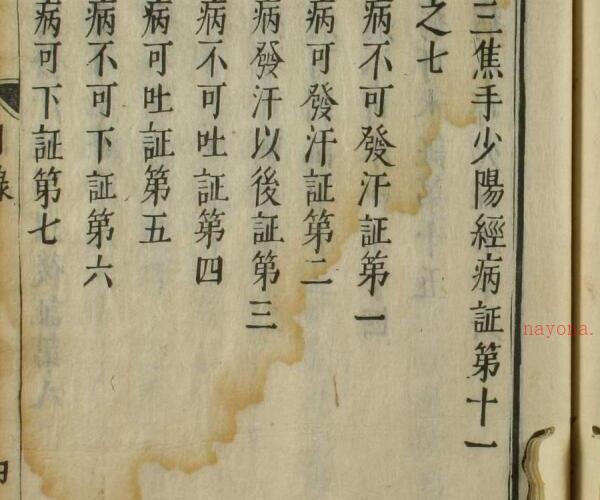 三焦手少陽經病証第十一
之七
病不可發汗証第一
病可發汗証第二
病發汗以後証第三
病不可吐証第四
病可吐証第五
病不可下証第六
病可下証第七
nayona.